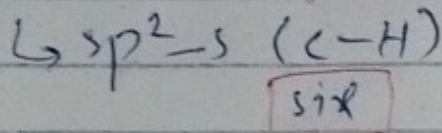 ↳ sp²-s (C-H)
six